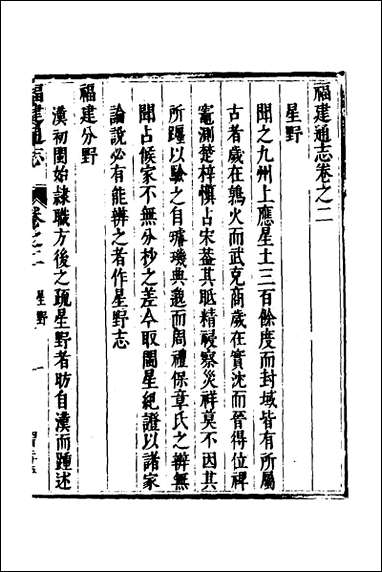 福建通志卷之二
星野
聞之九州上應星土三百餘度而封域皆有所屬
古者歲在鶉火而武克商歲在實沈而晉得位裨
竈測楚梓慎占宋蓋其眡精祲察災祥莫不因其
所躔以驗之自璿璣典邈而周禮保章氏之辨無
聞占候家不無分杪之差今取閩星紀證以諸家
論說必有能辨之者作星野志
福建分野
漢初閩始隸職方後之疏星野者昉自漢而踵述
福建通志
卷之二
星野
一